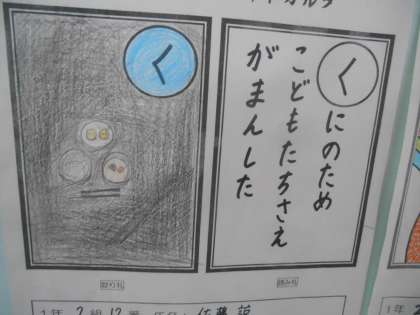 く
く
にのため
こどもたちさえ
がまんした
取り札
読み札
1年 2組 12番 氏名: 佐藤
1年